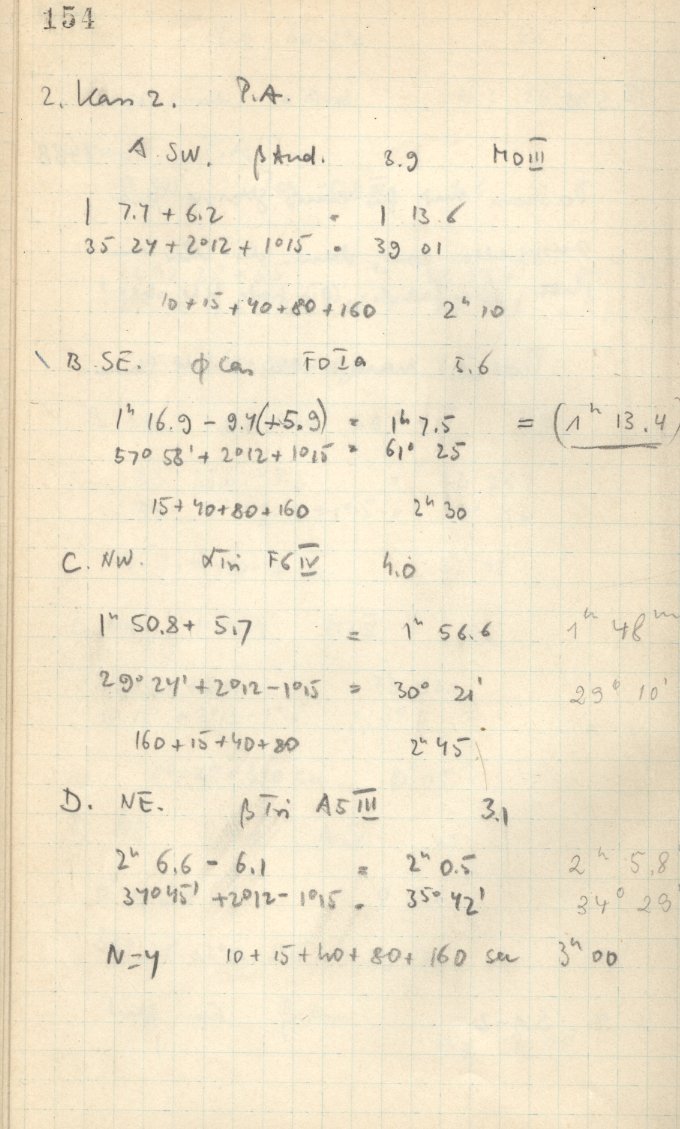 154
2. Kass 2. P.A.
A SW. β And. 3.9 M0 III
1 7.4 + 6.2 = 1 13.6
35 24 + 2°12 + 1°15 = 39 01
10+15+40+80+160 2ʰ 10
\ B SE. φ Cas F0 Ia 5.6
1ʰ 16.9 - 9.4(+5.9) = 1ʰ 7.5 = (1ʰ 13.4)
57° 58' + 2°12 + 1°15 = 61° 25
15+40+80+160 2ʰ 30
C. NW. α Tri F6 IV 4.0
1ʰ 50.8 + 5.7 = 1ʰ 56.6 1ʰ 48ᵐ
29° 24' + 2°12 - 1°15 = 30° 21' 29° 10'
160+15+40+80 2ʰ 45
D. NE. β Tri A5 III 3.1
2ʰ 6.6 - 6.1 = 2ʰ 0.5 2ʰ 5.8
34°45' + 2°12 - 1°15 = 35° 42' 34° 29'
N=4 10+15+40+80+160 sec 3ʰ 00